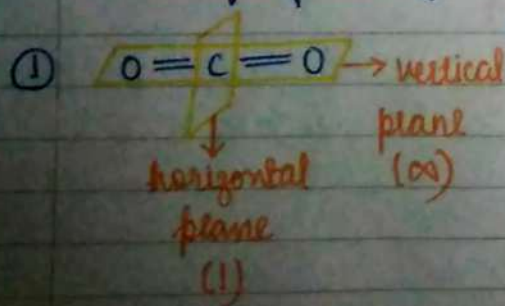 ① O=C=O → vertical
plane
(∞)
↓
horizontal
plane
(1)